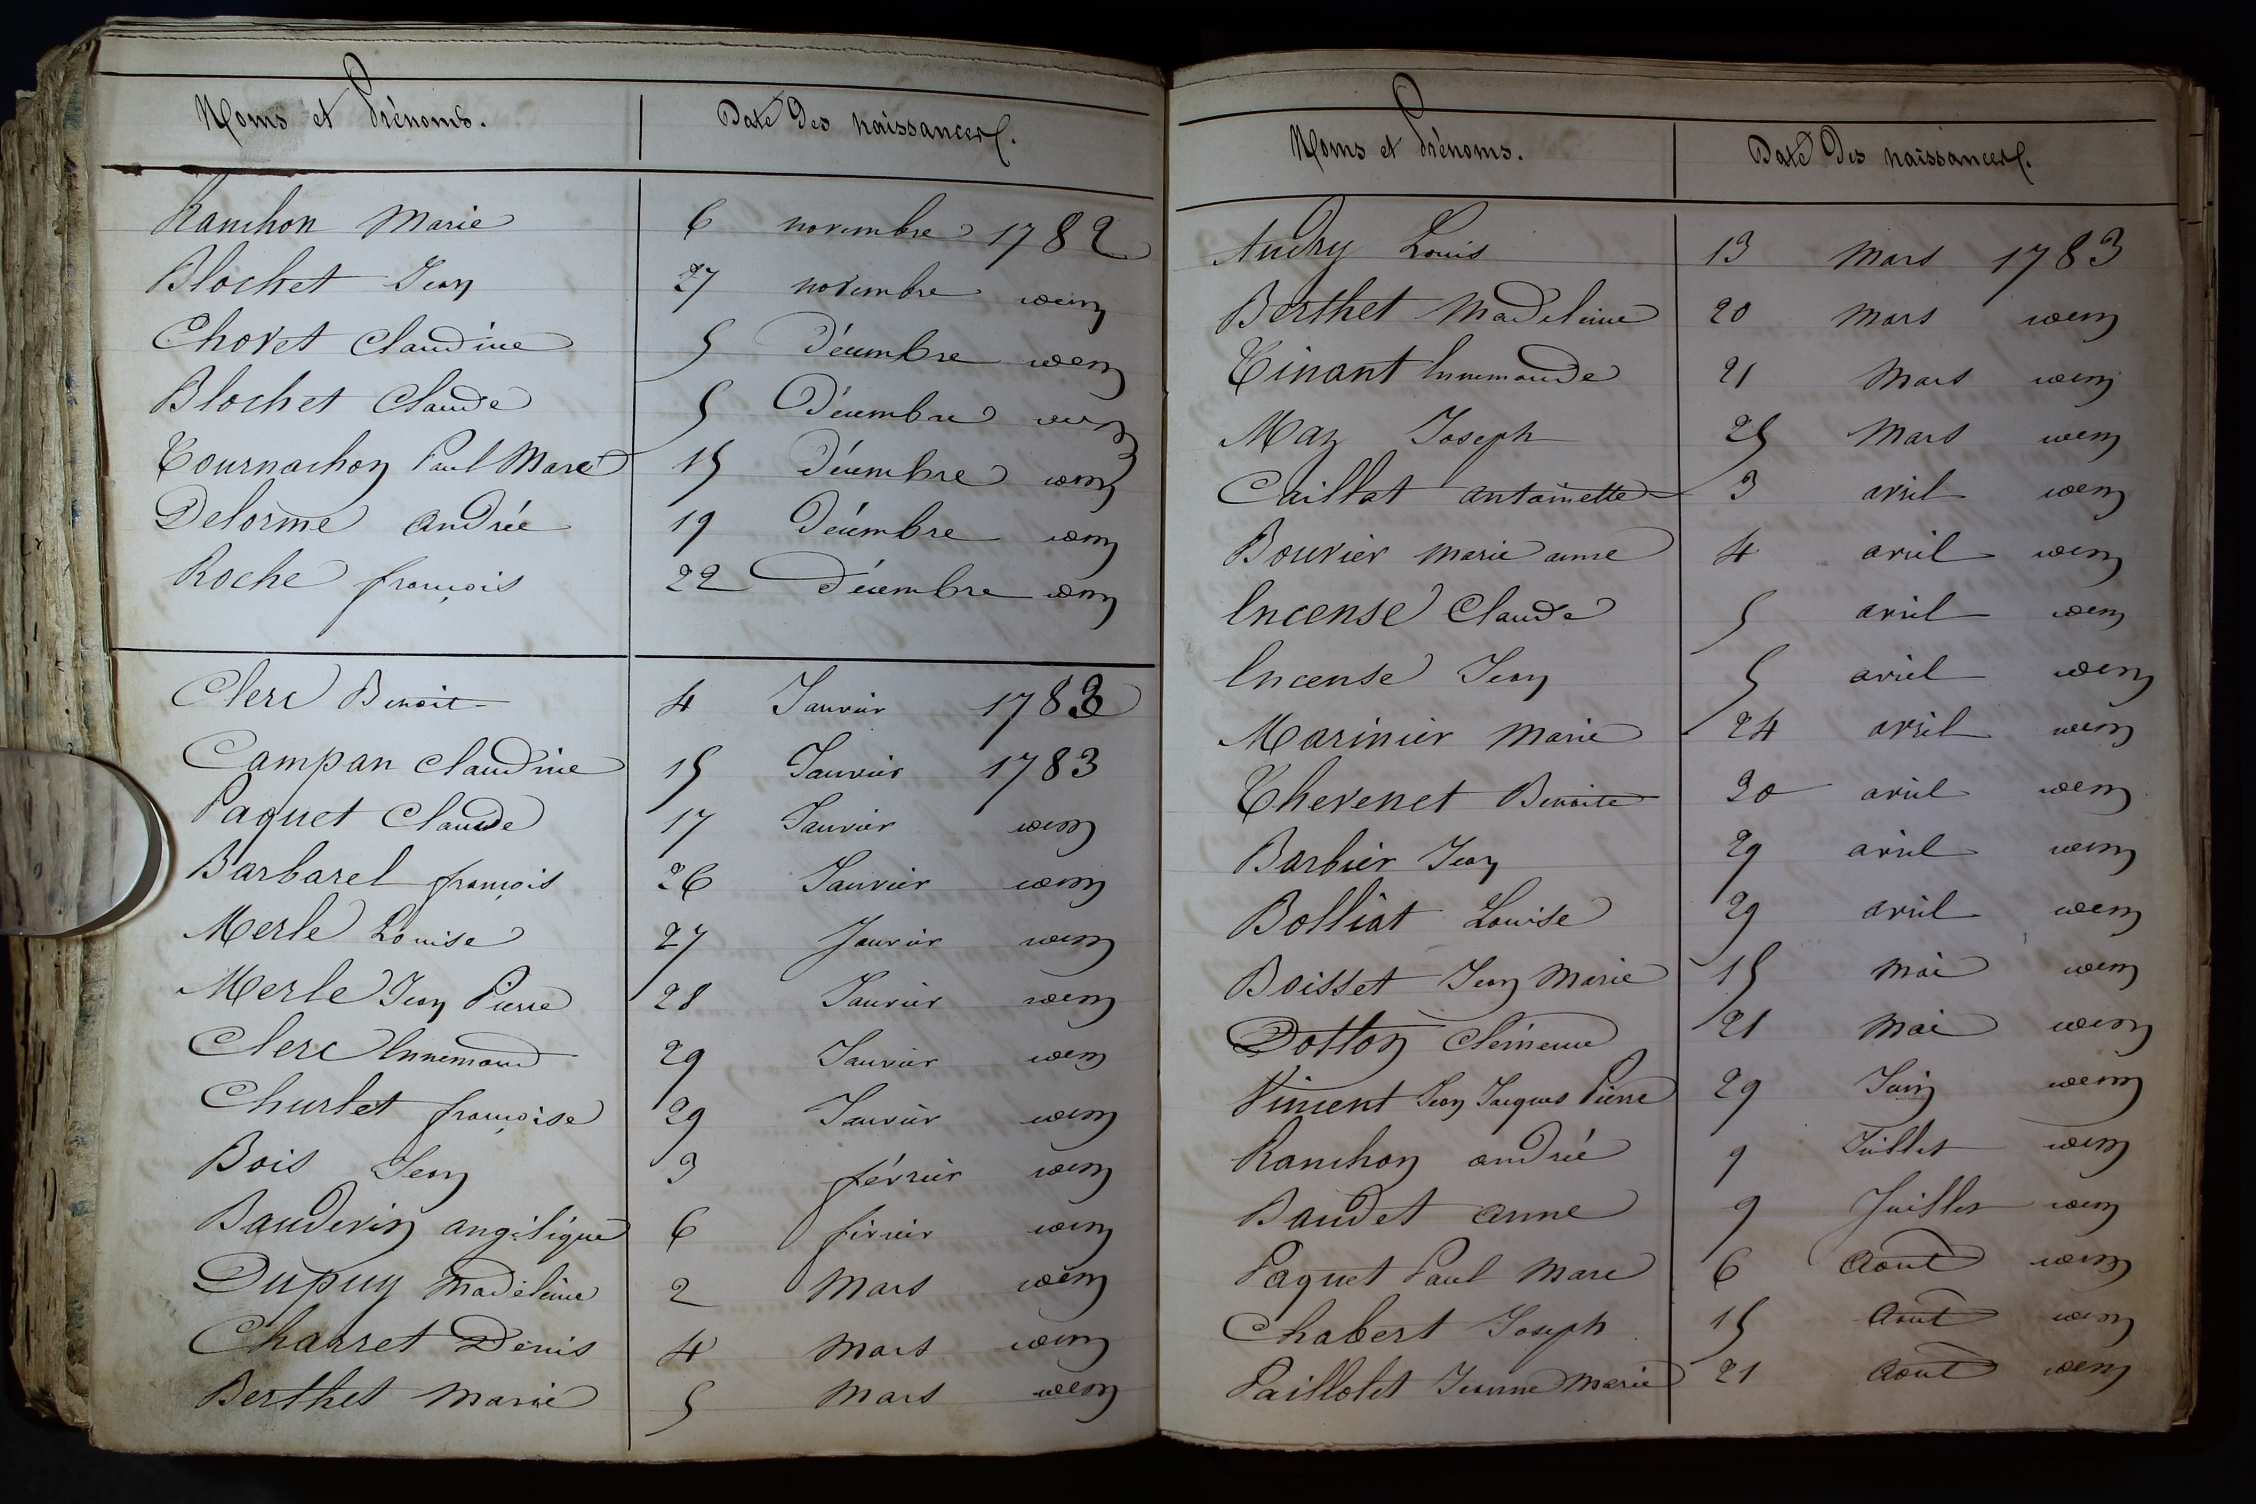 Noms et Prénoms.
Date des naissances.
Ranchon Marie 6 novembre 1782
Blochet Jean 27 novembre idem
Chovet Claudine 5 Décembre idem
Blochet Claude 5 Décembre idem
Tournachon Paul Marc 15 Décembre idem
Delorme andrée 19 Décembre idem
Roche françois 22 Décembre idem
Clerc Benoit 4 Janvier 1783
Campan Claudine 15 Janvier 1783
Paquet Claude 17 Janvier idem
Barbarel françois 26 Janvier idem
Merle Louise 27 Janvier idem
Merle Jean Pierre 28 Janvier idem
Clerc Ennemond 29 Janvier idem
Churlet françoise 29 Janvier idem
Bois Jean 3 février idem
Baudevin angélique 6 février idem
Dupuy Madeleine 2 Mars idem
Charret Denis 4 Mars idem
Berthet Marie 5 Mars idem
Noms et Prénoms.
Date des naissances.
Audry Louis 13 Mars 1783
Berthet Madeleine 20 Mars idem
Tinant Ennemonde 21 Mars idem
Maz Joseph 25 Mars idem
Caillat antoinette 3 avril idem
Bouvier Marie anne 4 avril idem
Encense Claude 5 avril idem
Encense Jean 5 avril idem
Marinier Marie 24 avril idem
Thevenet Benoite 20 avril idem
Barbier Jean 29 avril idem
Bolliat Louise 29 avril idem
Boisset Jean Marie 15 Mai idem
Dotton Clémence 21 Mai idem
Vincent Jean Jacques Pierre 29 Juin idem
Ranchon andrée 9 Juillet idem
Baudet anne 9 Juillet idem
Paquet Paul Marc 6 Aout idem
Chabert Joseph 15 Aout idem
Paillolet Jeanne Marie 21 Aout idem